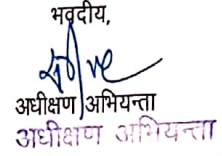 भवदीय,
अधीक्षण अभियन्ता
अधीक्षण अभियन्ता